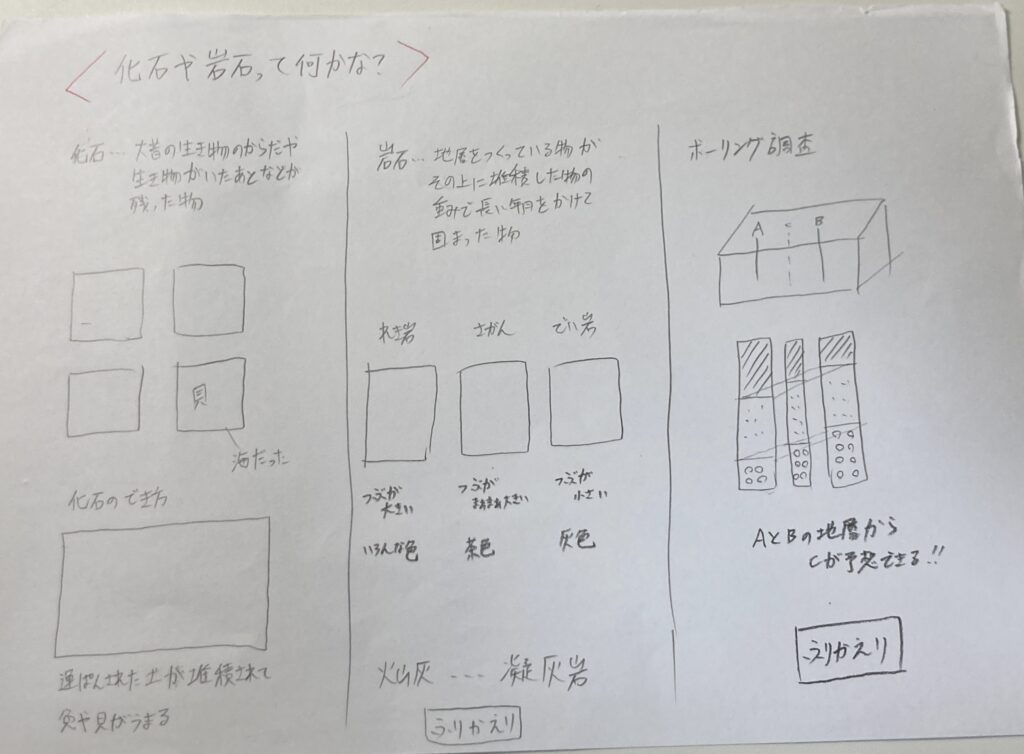 〈化石や岩石って何かな?〉
化石… 大昔の生き物のからだや
生き物がいたあとなどが
残った物
貝
海だった
化石のでき方
運ぱんされた土が堆積されて
魚や貝がうまる
岩石… 地層をつくっている物が
その上に堆積した物の
重みで長い年月をかけて
固まった物
れき岩 さがん でい岩
つぶが
大きい
つぶが
まあまあ大きい
つぶが
小さい
いろんな色 茶色 灰色
火山灰 … 凝灰岩
ふりかえり
ボーリング調査
A C B
AとBの地層から
Cが予想できる!!
ふりかえり